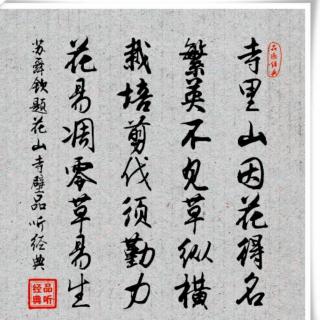 寺里山因花得名
繁英不见草纵横
栽培剪伐须勤力
花易凋零草易生
苏舜钦题花山寺壁品听经典
品听经典
品听经典